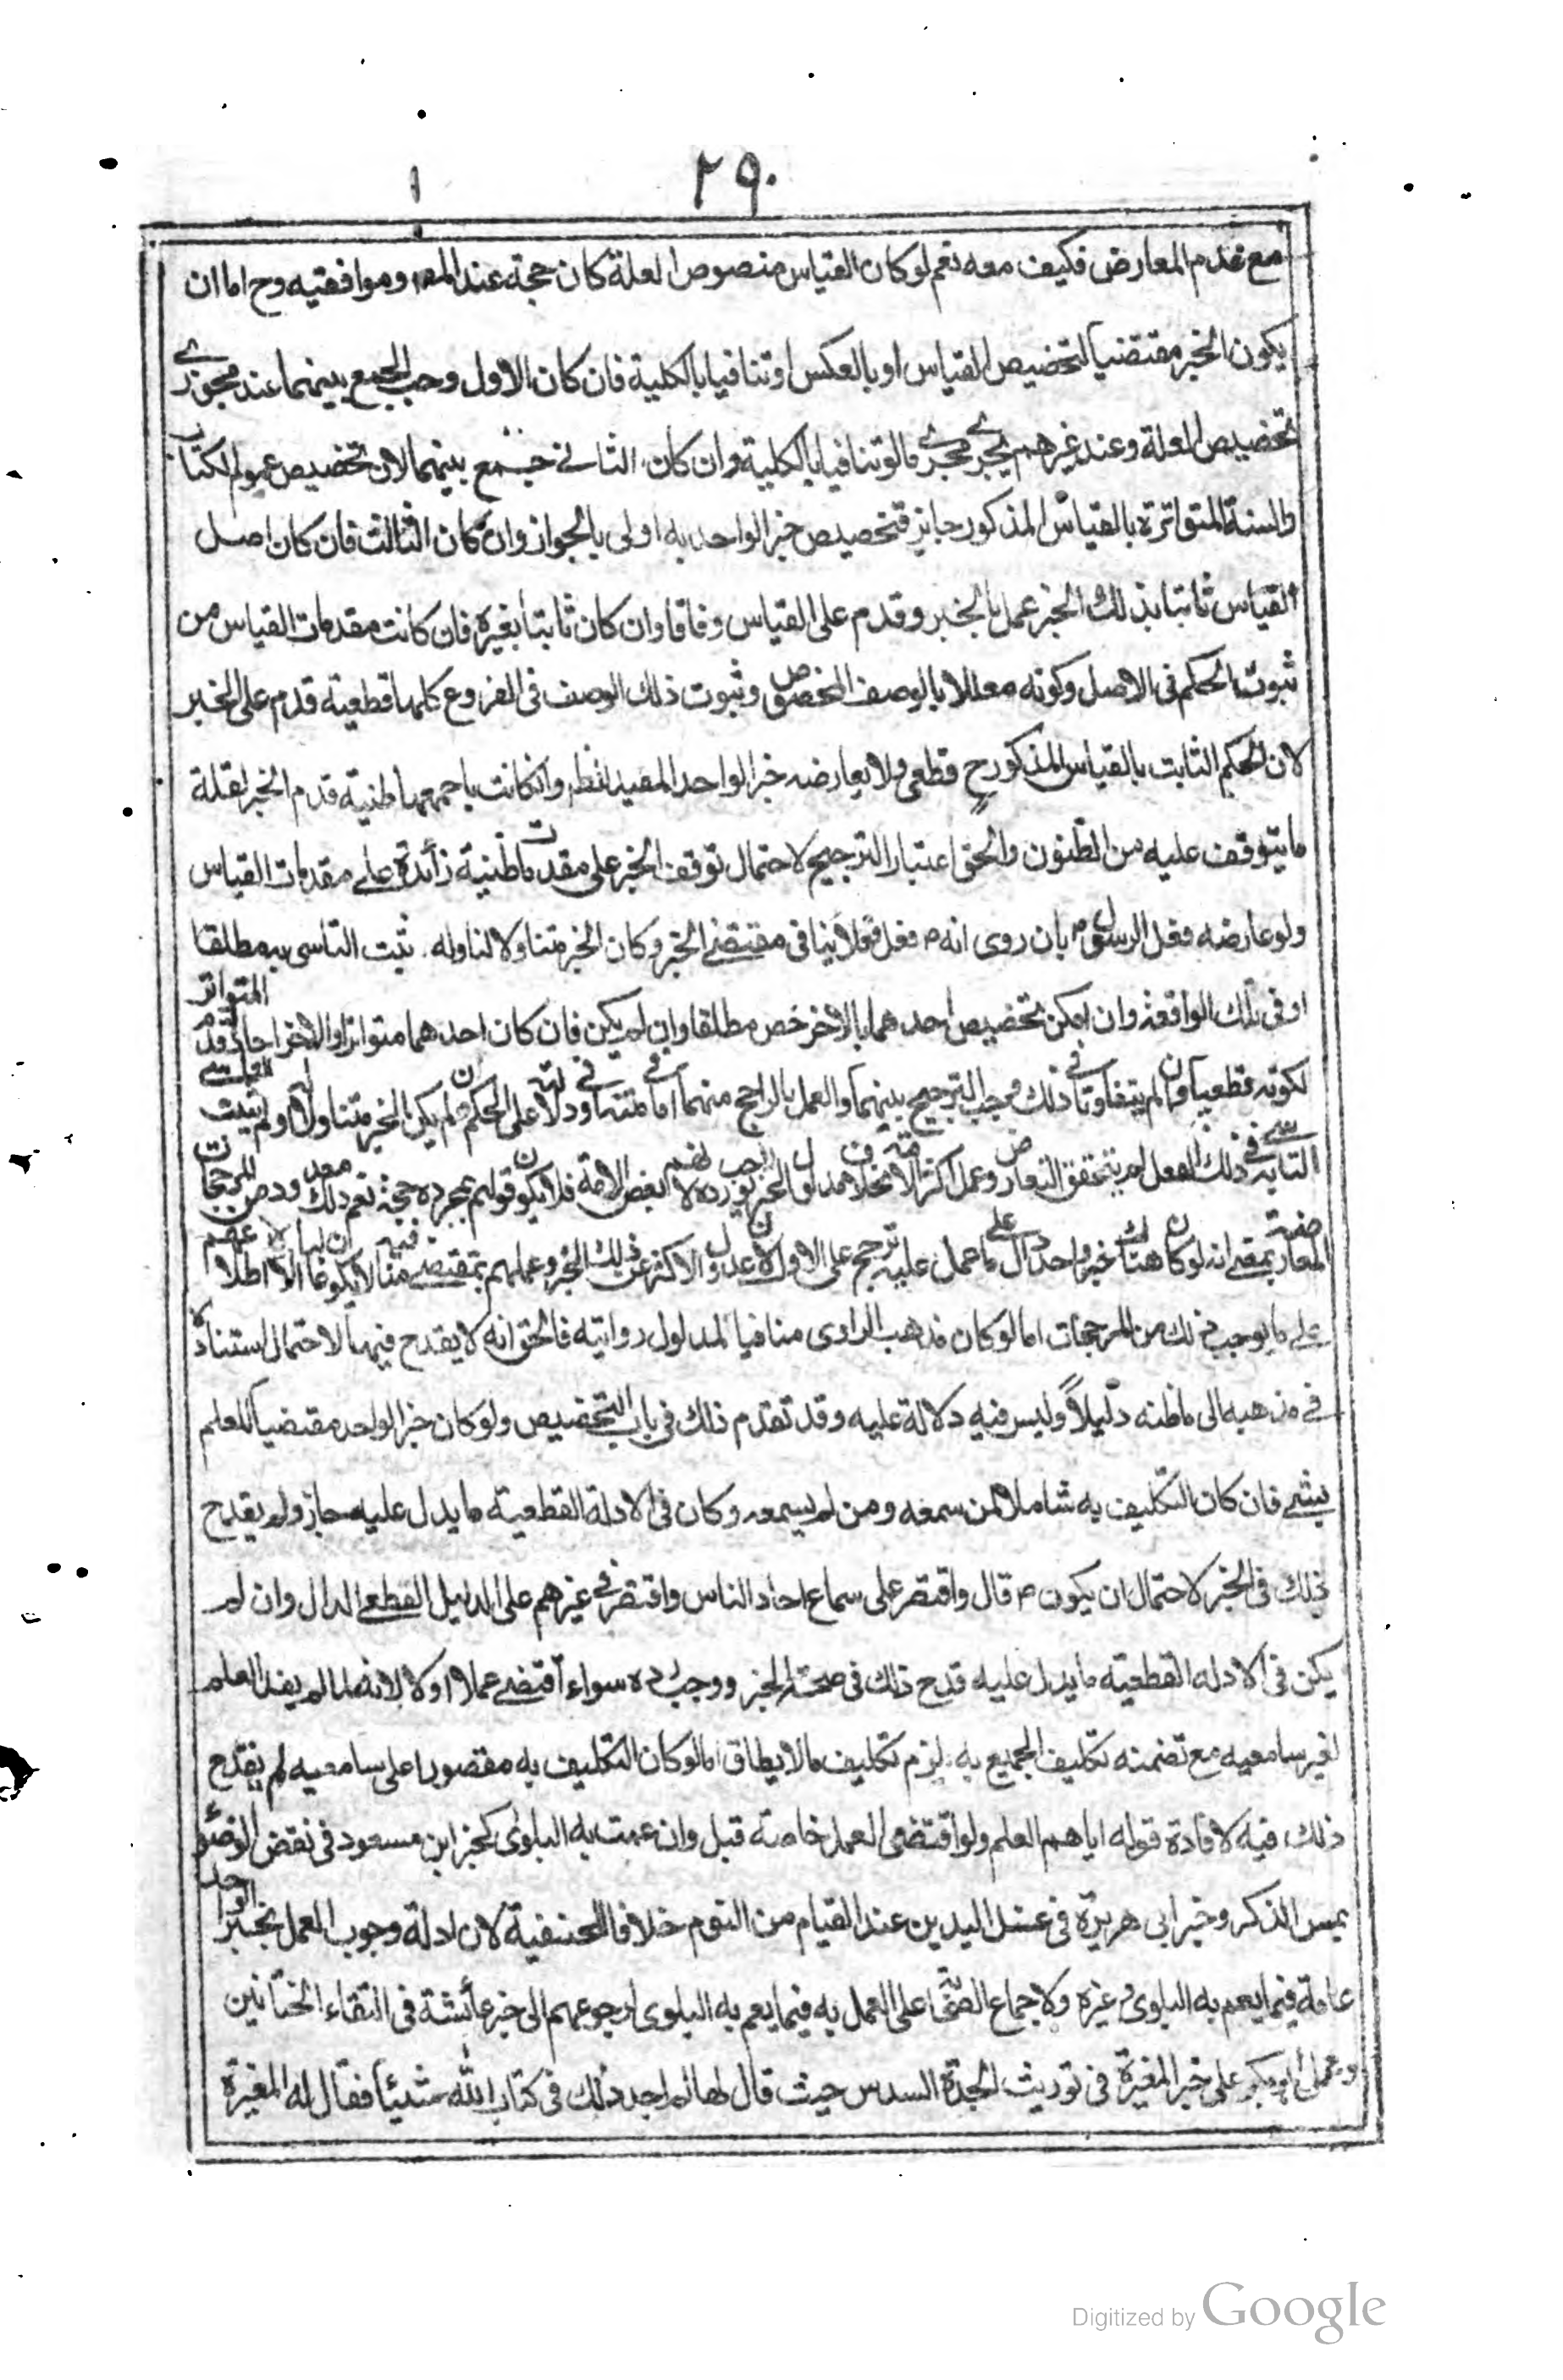 ٢٩٠
١
مع عدم المعارض فكيف معه نعم لو كان القياس منصوص العلة كان حجة عند المص وموافقيه وح اما ان
يكون الخبر مقتضيا لتخصيص القياس او بالعكس او تنافيا بالكلية فان كان الاول وجب الجمع بينهما عند مجوزى
تخصيص العلة وعند غيرهم يجرى مجرى ما لو تنافيا بالكلية وان كان الثانى جمع بينهما لان تخصيص عموم الكتاب
والسنة المتواترة بالقياس المذكور جايز فتخصيص خبر الواحد به اولى بالجواز وان كان الثالث فان كان اصل
القياس ثابتا بذلك الخبر عمل بالخبر وقدم على القياس وفاقا وان كان ثابتا بغيره فان كانت مقدمات القياس من
ثبوت الحكم فى الاصل وكونه معللا بالوصف المخصوص وثبوت ذلك الوصف فى الفروع كلها قطعية قدم على الخبر
لان الحكم الثابت بالقياس المذكور ح قطعى ولا يعارضه خبر الواحد المفيد للظن وان كانت باجمعها ظنية قدم الخبر لقلة
ما يتوقف عليه من الظنون والحق اعتبار الترجيح لاحتمال توقف الخبر على مقدمات ظنية زائدة على مقدمات القياس
ولو عارضه فعل الرسول م بان روى انه م فعل فعلا ينافى مقتضى الخبر وكان الخبر متناولا لناوله. ثبت التاسى به مطلقا
او فى تلك الواقعة وان امكن تخصيص احدهما بالاخر خص مطلقا وان لم يكن فان كان احدهما متواترا والاخر احاد قدم المتواتر
لكونه قطعيا وان لم يتفاوتا فى ذلك وجب الترجيح بينهما والعمل بالراجح منهما اما فى متنه او فى دلالته على الحكم وان لم يكن الخبر متناولا له او لم يثبت التاسى
به فى ذلك الفعل لم يتحقق التعارض وعمل اكثر الامة بخلاف مدلول الخبر لا يوجب رده لانهم بعض الامة فلا يكون قولهم بمجرده حجة نعم ذلك معدود من المرجحات
بمعنى انه لو كان هناك خبر واحد دال على ما عمل عليه ترجح على الاول لان عدول الاكثر عن ذلك الخبر وعملهم بمقتضى منافيه لا يكون غالبا الا لاطلاعهم
على ما يوجب ذلك من المرجحات اما لو كان مذهب الراوى منافيا لمدلول روايته فالحق انه لا يقدح فيها لاحتمال استناده
فى مذهبه الى ما ظنه دليلاً وليس فيه دلالة عليه وقد تقدم ذلك فى باب التخصيص ولو كان خبر الواحد مقتضيا للعلم
بشى فان كان التكليف به شاملا لمن سمعه ومن لم يسمعه وكان فى الادلة القطعية ما يدل عليه جاز ولم يقدح
ذلك فى الخبر لاحتمال ان يكون م قال واقتصر على سماع احاد الناس واقتصر فى غيرهم على الدليل القطعى الدال وان لم
يكن فى الادله القطعية ما يدل عليه قدح ذلك فى صحة الخبر ووجب رده سواء اقتضى عملا او لا لانه لما لم يفد العلم
لغير سامعيه مع تضمنه تكليف الجميع به لزم تكليف مالا يطاق اما لو كان التكليف به مقصورا على سامعيه لم يقدح
ذلك فيه لافادة قوله اياهم العلم ولو اقتضى العمل خاصة قبل وان عمت به البلوى كخبر ابن مسعود فى نقض الوضوء
بمس الذكر وخبر ابى هريرة فى غسل اليدين عند القيام من النوم خلافا للحنفية لان ادلة وجوب العمل بخبر الواحد
عامة فيما يعم به البلوى وغيره ولاجماع الصحابة على العمل به فيما يعم به البلوى لرجوعهم الى خبر عائشة فى التقاء الختانين
وعمل ابو بكر على خبر المغيرة فى توريث الجدة السدس حيث قال لها لم اجد ذلك فى كتاب الله شيئا فقال له المغيرة
Digitized by Google